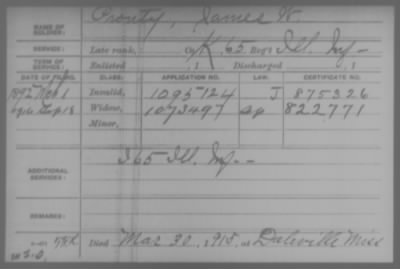 NAME OF SOLDIER: Prouty, James W.
SERVICE: Late rank, Co. K, 65 Reg't Ill. Inf.
TERM OF SERVICE: Enlisted , 1 Discharged , 1
DATE OF FILING. CLASS. APPLICATION NO. LAW. CERTIFICATE NO.
1892 Nov 1 Invalid, 1095124 J 875326
Sep 18 Widow, 1073497 822771
Minor,
ADDITIONAL SERVICES: 65 Ill. Inf.
REMARKS:
Died Mar 30, 1915, at Daleville Miss